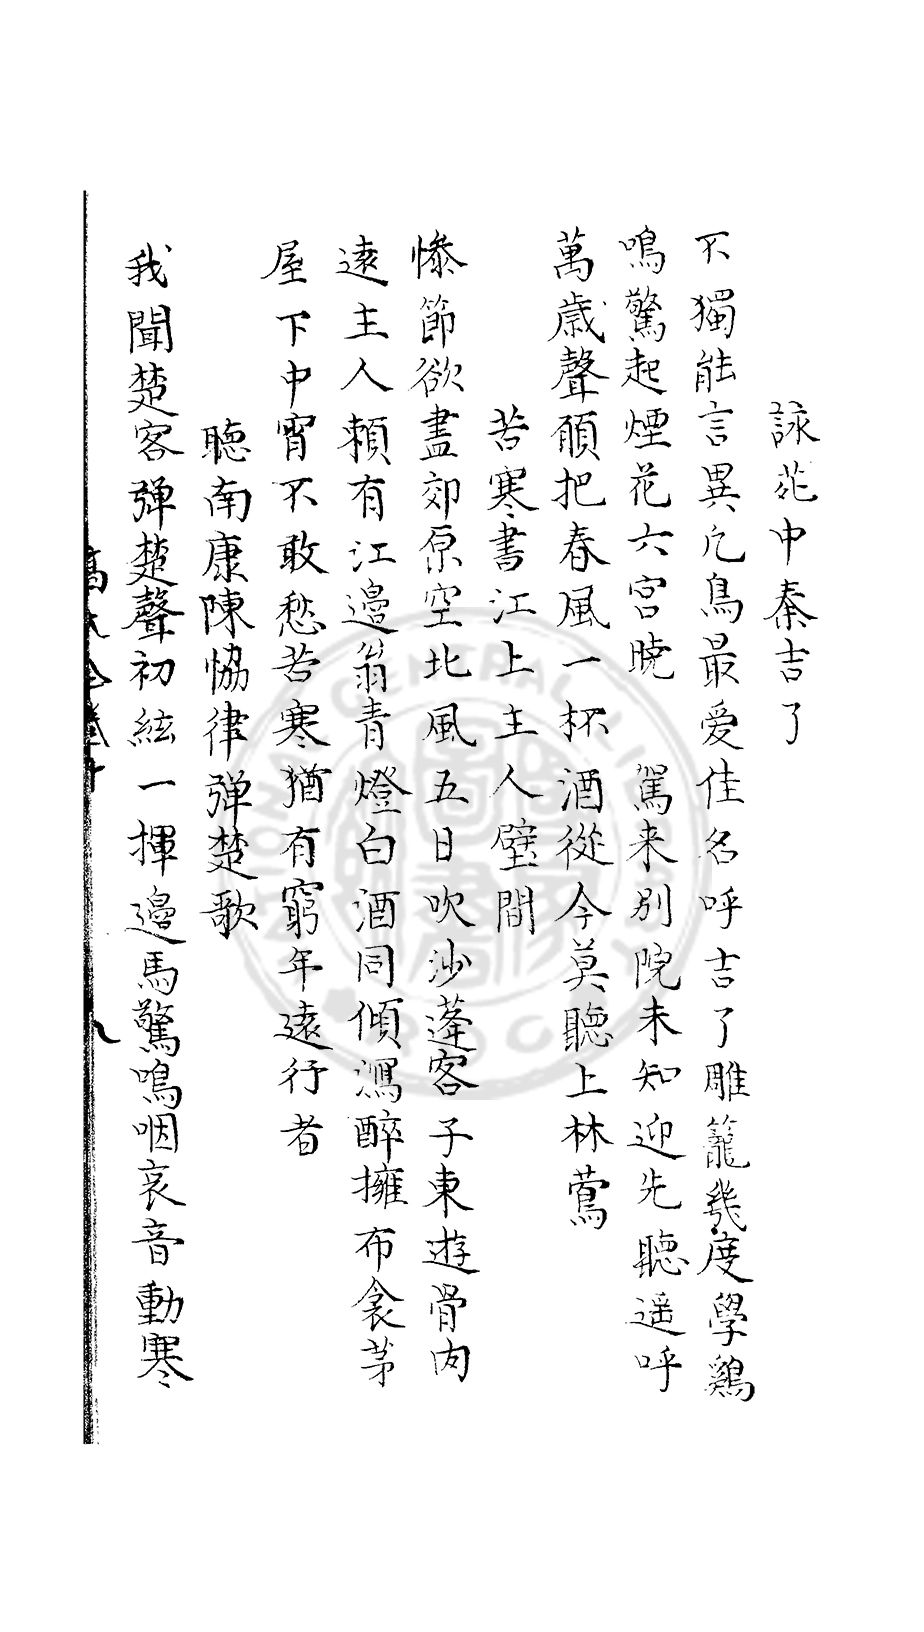 詠苑中秦吉了
不獨能言異凢鳥最愛佳名呼吉了雕籠幾度學鷄
鳴驚起煙花六宮曉　駕来别院未知迎先聽遥呼
萬歲聲願把春風一杯酒從今莫聽上林鶯
苦寒書江上主人壁間
慘節欲盡郊原空北風五日吹沙蓬客子東遊骨肉
遠主人頼有江邊翁青燈白酒同傾瀉醉擁布衾茅
屋下中宵不敢愁苦寒猶有窮年遠行者
聽南康陳恊律弹楚歌
我聞楚客弹楚聲初絃一揮邊馬驚鳴咽哀音動寒